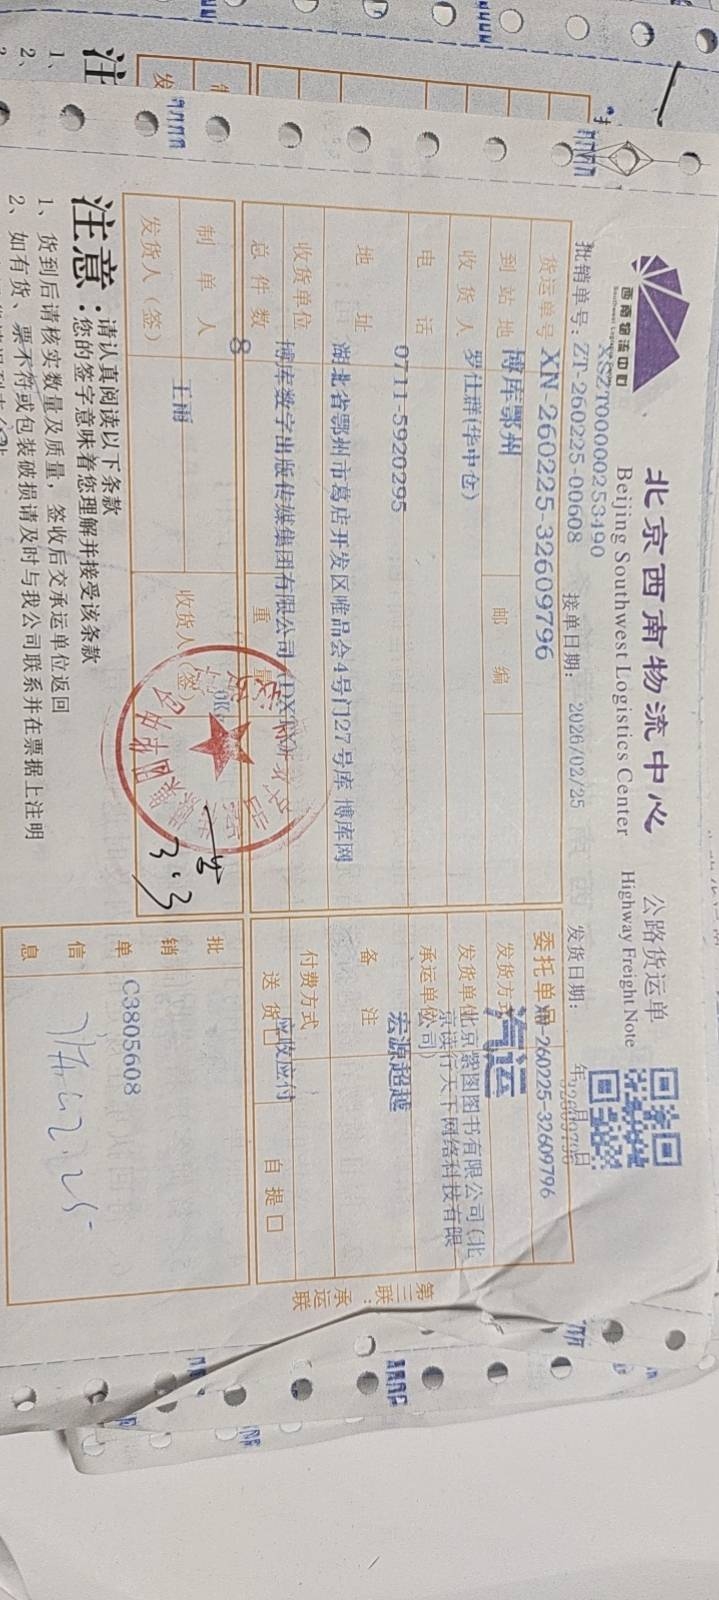 西南物流中心
Southwest Logistics Center
北京西南物流中心
公路货运单
Beijing Southwest Logistics Center
Highway Freight Note
XSZT00000253490
批销单号：ZT-260225-00608 接单日期： 2026/02/25 发货日期： 年 月 日
货运单号 XN-260225-32609796 委托单号 XN-260225-32609796
到站地 博库鄂州 邮编 发货方式 汽运
收货人 罗仕群(华中仓) 发货单位 北京紫图图书有限公司(北
京读行天下网络科技有限
公司)
电话 0711-5920295 承运单位 宏源超越
地址 湖北省鄂州市葛店开发区唯品会4号门27号库 博库网 备注
收货单位 博库数字出版传媒集团有限公司 付费方式 应收应付
总件数 8 重量 送货□ 自提□
制单人 王雨 收货人(签)
发货人(签)
3.3
批销单信息 C3805608
第三联：承运联
注意：
请认真阅读以下条款
您的签字意味着您理解并接受该条款
1、货到后请核实数量及质量，签收后交承运单位返回
2、如有货、票不符或包装破损请及时与我公司联系并在票据上注明
注
1、
2、